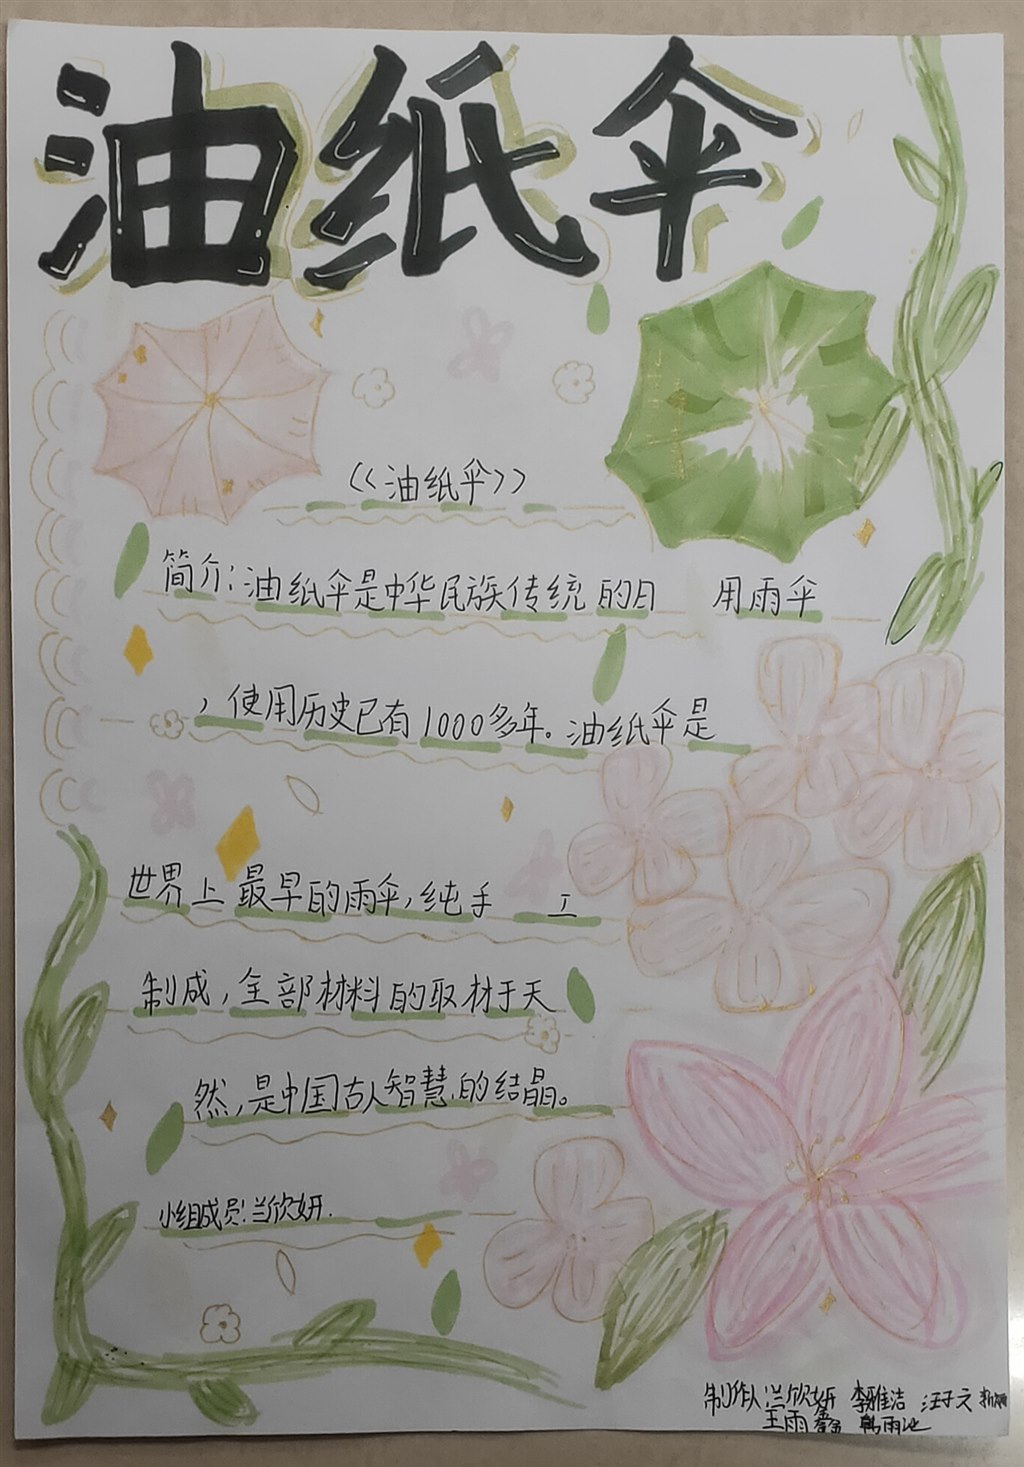 油纸伞
《油纸伞》
简介:油纸伞是中华民族传统的日 用雨伞
,使用历史已有1000多年。油纸伞是
世界上最早的雨伞,纯手 工
制成,全部材料的取材于天
然,是中国古人智慧的结晶。
小组成员:兰欣妍.
制作人兰欣妍 李雅洁 汪子文
王雨鑫 韩雨池